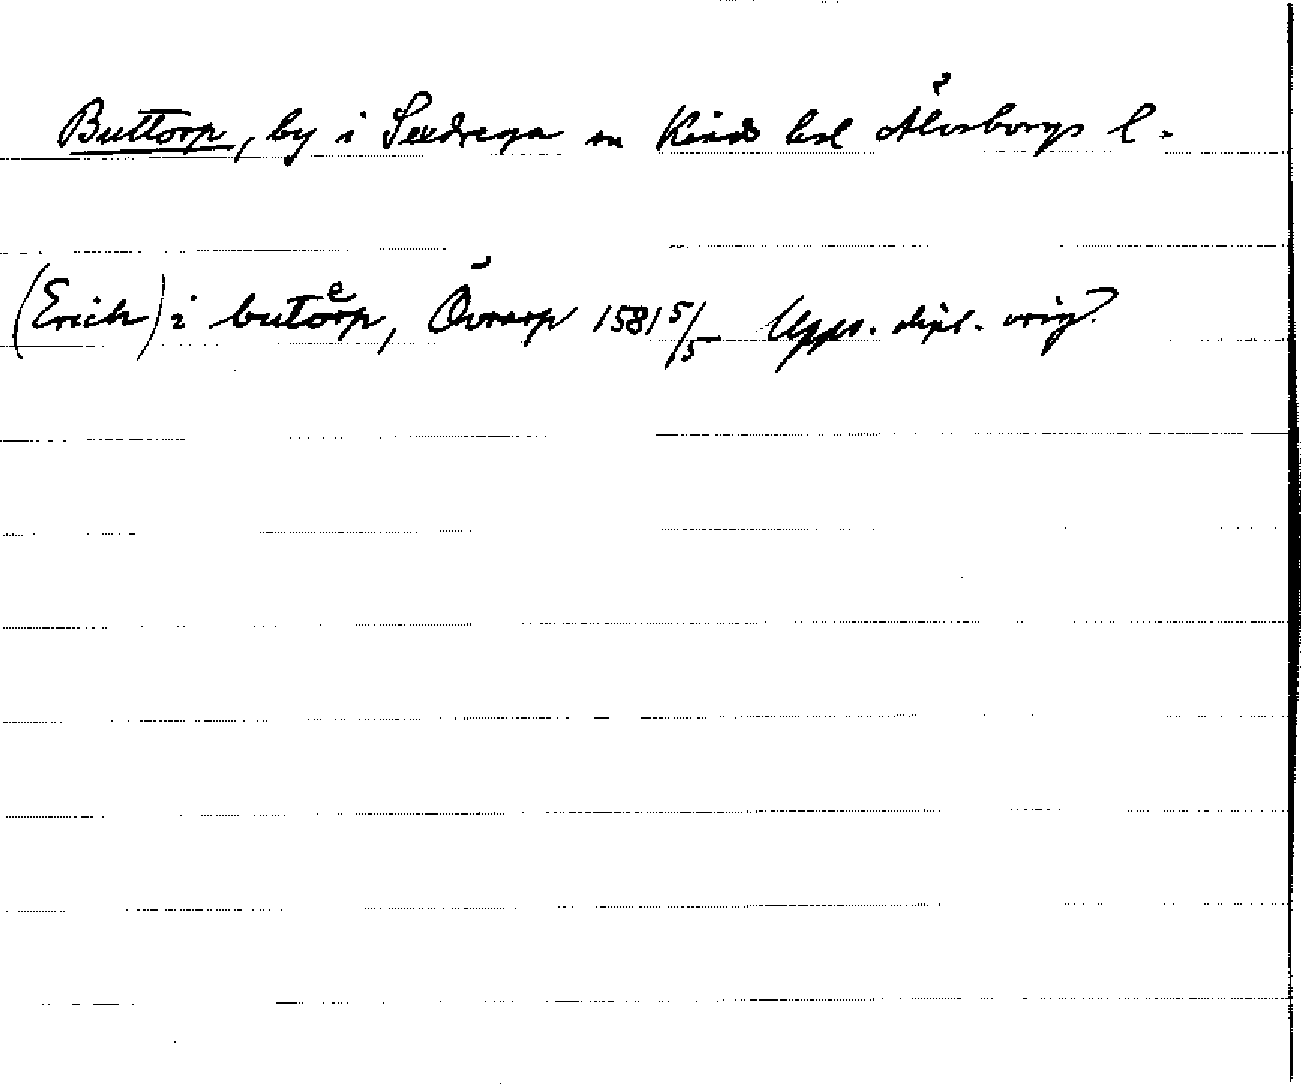 Buttorp, by i Sexdrega sn Kinds hd Älvsborgs l.
(Erich) i butoͤrp, Övrarp 1581 5/5 Upps. dipl. orig.